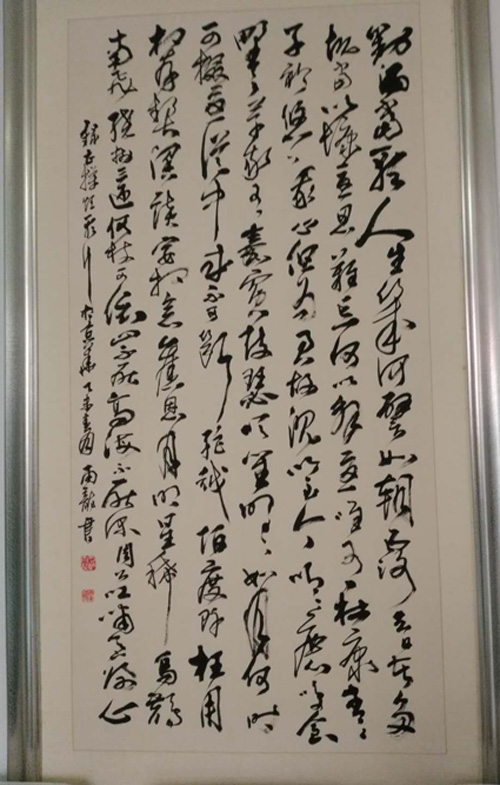 對酒當歌人生幾何譬如朝露去日苦多
慨當以慷憂思難忘何以解憂唯有杜康青青
子衿悠悠我心但為君故沉吟至今呦呦鹿鳴食
野之苹我有嘉賓鼓瑟吹笙明明如月何時
可掇憂從中來不可斷絕越陌度阡枉用
相存契闊談讌心念舊恩月明星稀烏鵲
南飛繞樹三匝何枝可依山不厭高海不厭深周公吐哺天下歸心
錄曹操短歌行於京華書